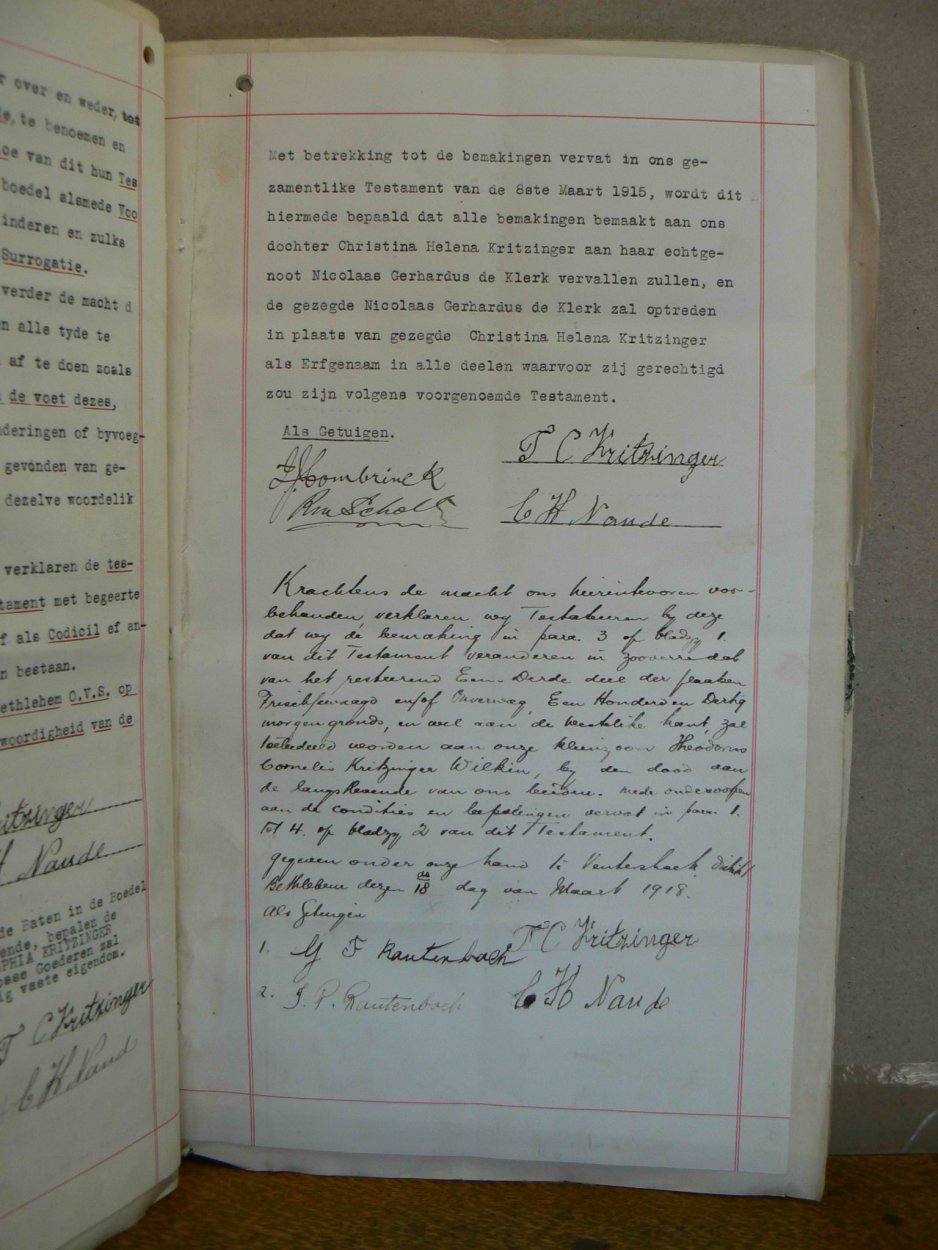 r over en weder, tot
de, te benoemen en
oe van dit hun Tes
boedel alsmede Voo
inderen en zulks
Surrogatie.
verder de macht d
n alle tyde te
af te doen zoals
de voet dezes,
nderingen of byvoeg-
gevonden van ge-
dezelve woordelik
verklaren de tes-
tament met begeerte
f als Codicil ef an-
n bestaan.
ethlehem O.V.S. op
woordigheid van de
ritzinger
H Naude
de Baten in de Boedel
ende, bepalen de
PHIA KRITZINGER
osse Goederen zal
ig vaste eigendom.
T C Kritzinger
C H Naud
Met betrekking tot de bemakingen vervat in ons ge-
zamentlike Testament van de 8ste Maart 1915, wordt dit
hiermede bepaald dat alle bemakingen bemaakt aan ons
dochter Christina Helena Kritzinger aan haar echtge-
noot Nicolaas Gerhardus de Klerk vervallen zullen, en
de gezegde Nicolaas Gerhardus de Klerk zal optreden
in plaats van gezegde Christina Helena Kritzinger
als Erfgenaam in alle deelen waarvoor zij gerechtigd
zou zijn volgens voorgenoemde Testament.
Als Getuigen.
T C Kritzinger
J Lombrinck
Rm Scholtz
C H Naude
Krachtens de macht ons hierintevoren voor-
behouden, verklaren wy Testateuren by deze
dat wy de bemaking in para. 3 op bladzy 1.
van dit Testament veranderen in zooverre dat
van het resteerend Een-Derde deel der plaatsen
en/of Onverwag, Een Honderd en Dertig
morgen gronds, en wel aan de westelike kant, zal
toebedeeld worden aan onze kleinzoon Theodorus
Cornelis Kritzinger Wilkin, by den dood van
de langstlevende van ons beiden. mede onderworpen
aan de condities en bepalingen vervat in para 1.
tot 4. op bladzy 2 van dit Testament.
gegeven onder onze hand te Ventershoek distrikt
Bethlehem dezen 18de dag van Maart 1918.
Als Getuigen
1. G F Rautenbach
T C Kritzinger
2. J. P. Rautenbach
C H Naude